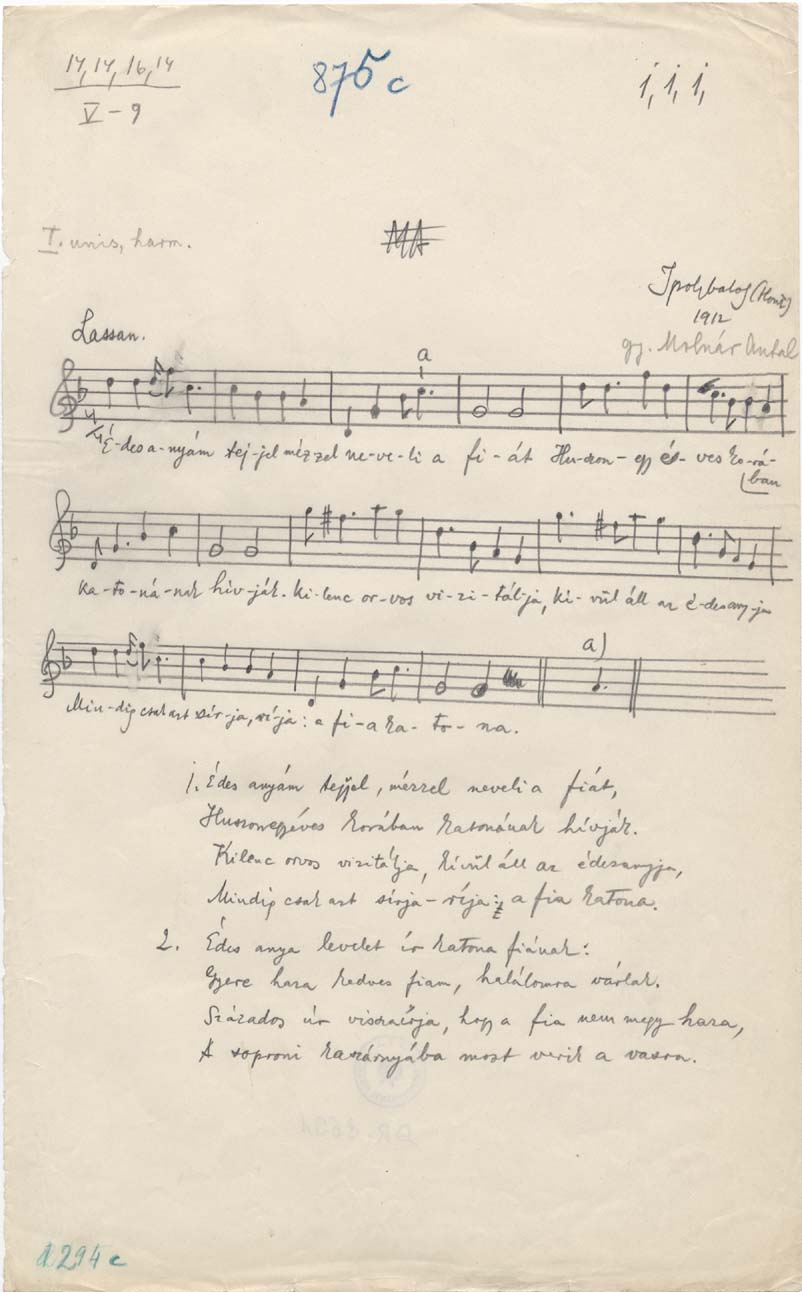 14, 14, 16, 14
V – 9
875 c
1, 1, 1,
I. unis, harm.
MA
Ipolybalog (Hont)
1912
gy. Molnár Antal
Lassan.
a
É-des a-nyám tej-jel mézzel ne-ve-li a fi-át Hu-szon-egy é-ves ko-rá-
ban
ka-to-ná-nak hív-ják. Ki-lenc or-vos vi-zi-tál-ja, kí-vül áll az é-desany-ja
a)
Min-dig csak azt sír-ja, rí-ja: a fi-a ka-to-na.
1. Édes anyám tejjel, mézzel neveli a fiát,
Huszonegyéves korában katonának hívják.
Kilenc orvos vizitálja, kívül áll az édesanyja,
Mindig csak azt sírja-ríja: a fia katona.
2. Édes anya levelet ír katona fiának:
Gyere haza kedves fiam, halálomra várlak.
Százados úr visszaírja, hogy a fia nem megy haza,
A soproni kaszárnyába most verik a vasra.
d294c